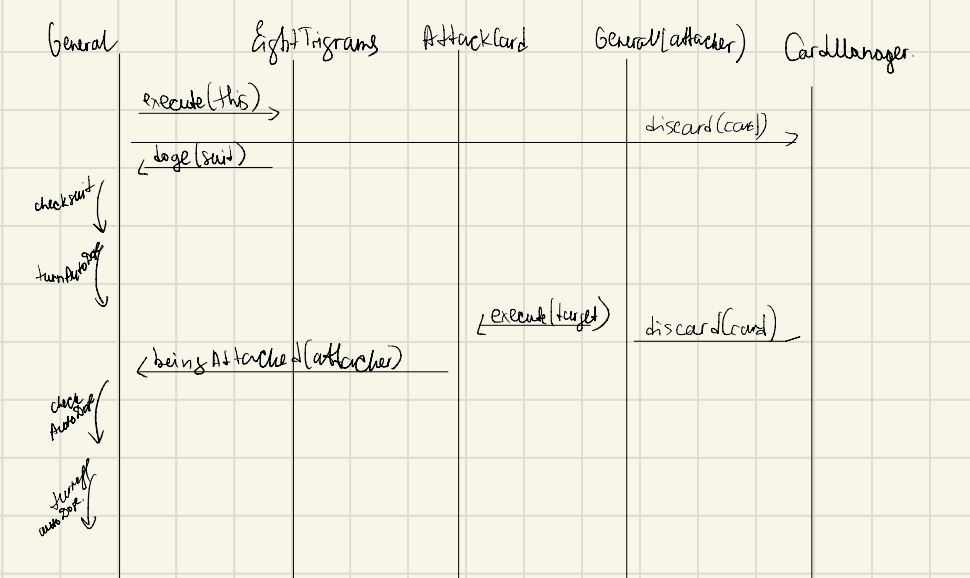 General
EightTrigrams
AttackCard
General(attacker)
CardManager.
execute(this)
discard(card)
doge(suit)
checksuit
turnAutoDoge
execute(target)
discard(card)
beingAttacked(attacker)
check
AutoDoge
turnoff
autoDoge.